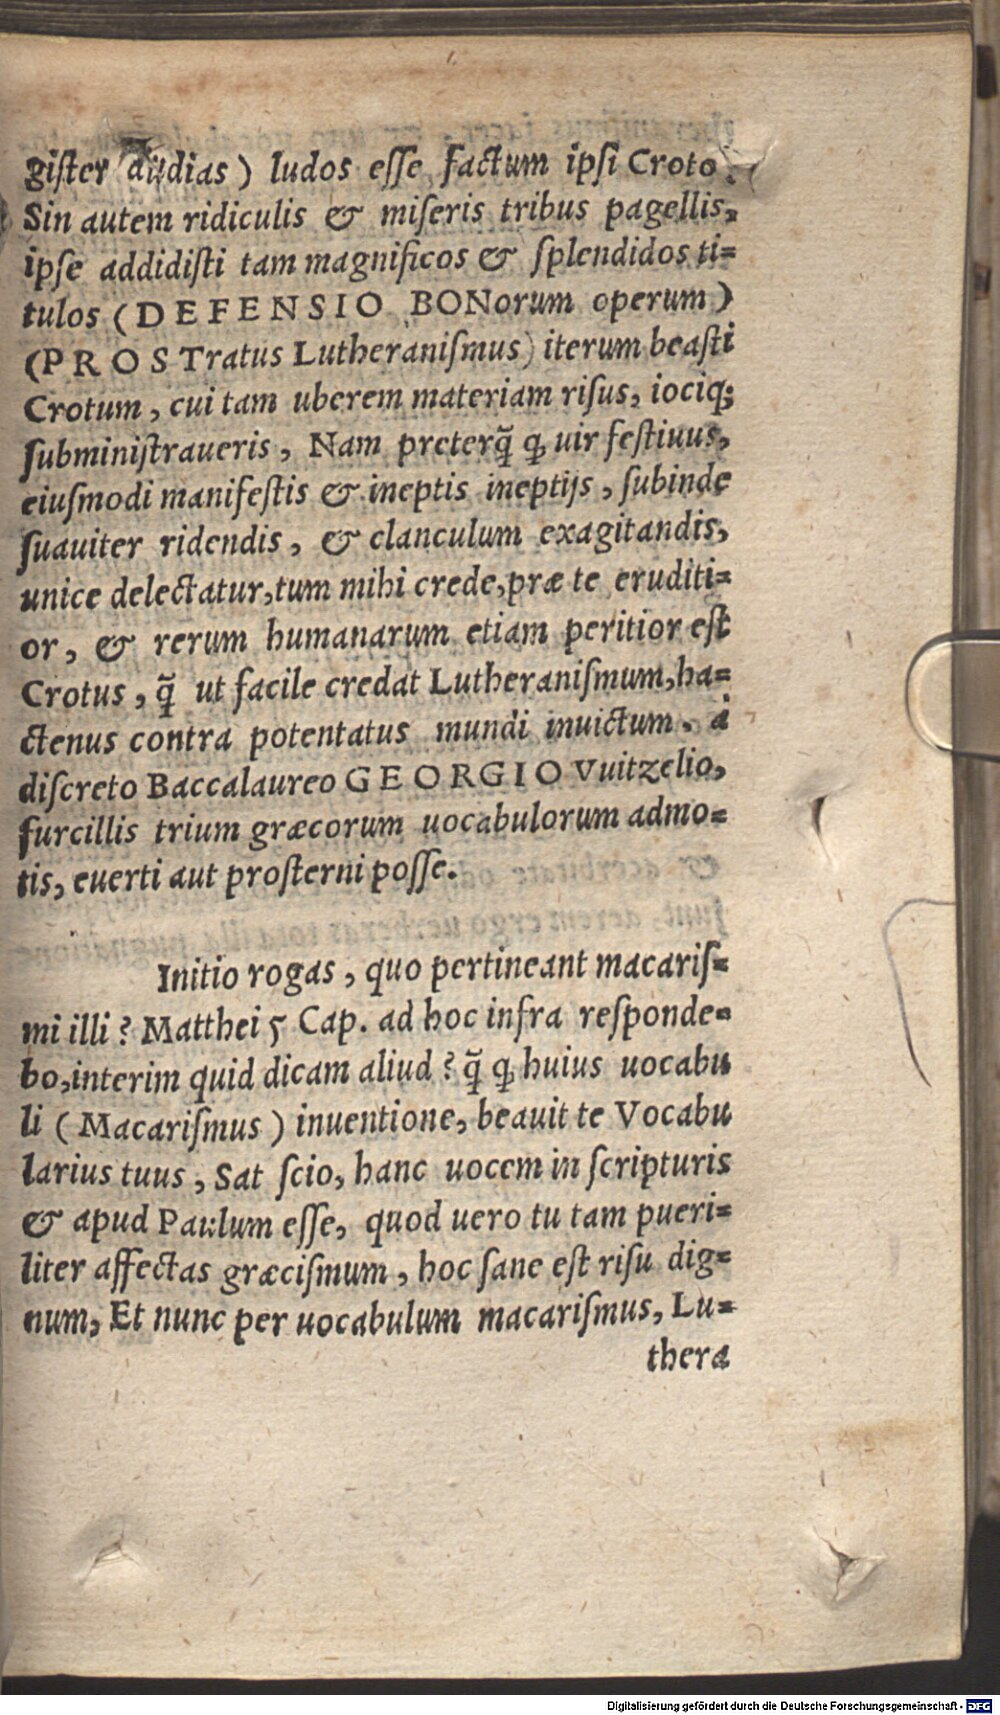 giſter audias) ludos eſſe factum ipſi Croto.
Sin autem ridiculis & miſeris tribus pagellis,
ipſe addidiſti tam magnificos & ſplendidos ti=
tulos (DEFENSIO BONorum operum)
(PROSTratus Lutheraniſmus) iterum beaſti
Crotum, cui tam uberem materiam riſus, iociq;
ſubminiſtraueris, Nam preterq̃ ꝙ uir feſtiuus,
eiuſmodi manifeſtis & ineptis ineptijs, ſubinde
ſuauiter ridendis, & clanculum exagitandis,
unice delectatur, tum mihi crede, præ te eruditi=
or, & rerum humanarum etiam peritior eſt
Crotus, q̃ ut facile credat Lutheraniſmum, ha=
ctenus contra potentatus mundi inuictum. à
diſcreto Baccalaureo GEORGIO Vuitzelio,
furcillis trium græcorum uocabulorum admo=
tis, euerti aut proſterni poſſe.
Initio rogas, quo pertineant macariſ=
mi illi? Matthei 5 Cap. ad hoc infra reſponde=
bo, interim quid dicam aliud? q̃ ꝙ huius uocabu
li (Macariſmus) inuentione, beauit te Vocabu
larius tuus, Sat ſcio, hanc uocem in ſcripturis
& apud Paulum eſſe, quod uero tu tam pueri=
liter affectas græciſmum, hoc ſane eſt riſu dig=
num, Et nunc per uocabulum macariſmus, Lu=
thera
Digitalisierung gefördert durch die Deutsche Forschungsgemeinschaft - DFG